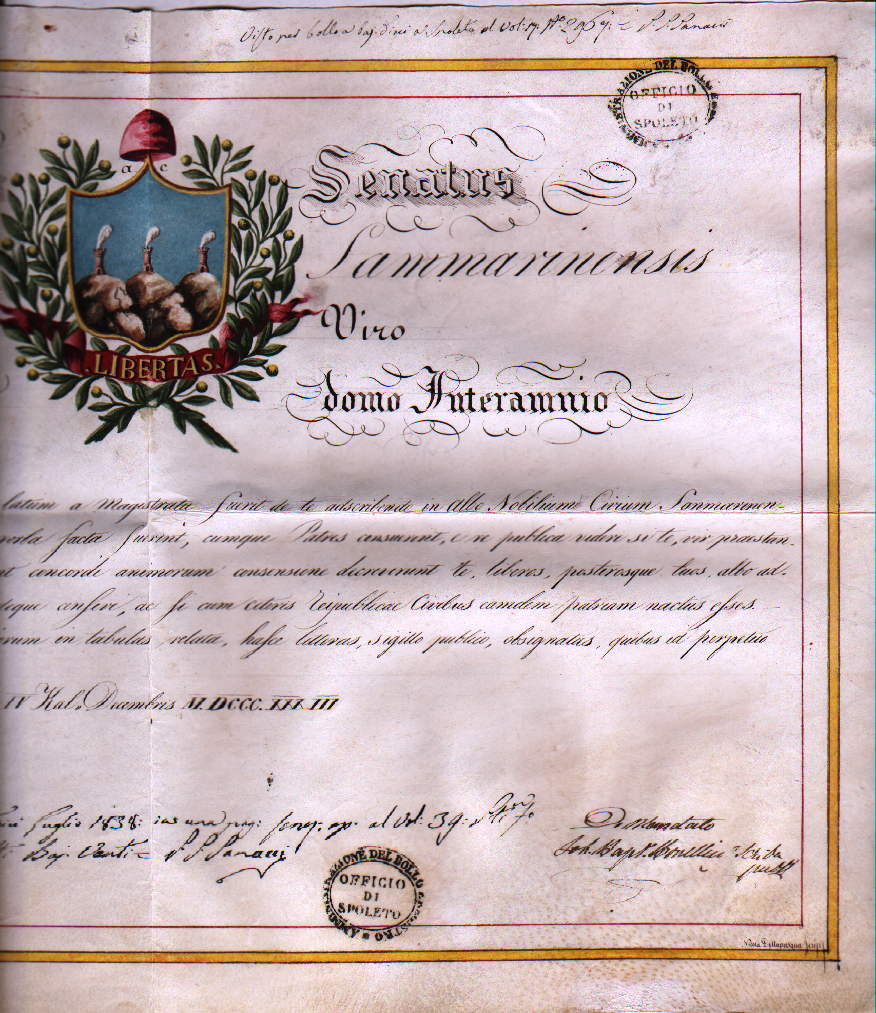 Visto per bollo a baj: dieci a Spoleto al Vol: 17. N.º
AMMINISTRAZIONE DEL BOLLO E REGISTRO
OFFICIO
DI
SPOLETO
a c
Senatus
Sammarinensis
Viro
.LIBERTAS.
domo Interamnio
latum a Magistratu fuerit de te adscribendo in Albo Nobilium Civium Sammarinen-
verba facta fuerint, cumque Patres censuerint, e re publica videri si te, vir praestan-
nt concordi animorum consensione decreverunt te, liberos, posterosque tuos, albo ad-
deque censeri, ac si cum ceteris Reipublicae Civibus eamdem patriam nactus esses.
rerum in tabulas relata, hasce litteras, sigillo publico, obsignatas, quibus id perpetuo
IV Kal. Decembris M.DCCC.XXXIII
Luglio 1838: in una pag: al Vol: 39:
Baj. Venti
De Mandato
Joh. Bap.
AMMINISTRAZIONE DEL BOLLO E REGISTRO
OFFICIO
DI
SPOLETO
Dellapasqua